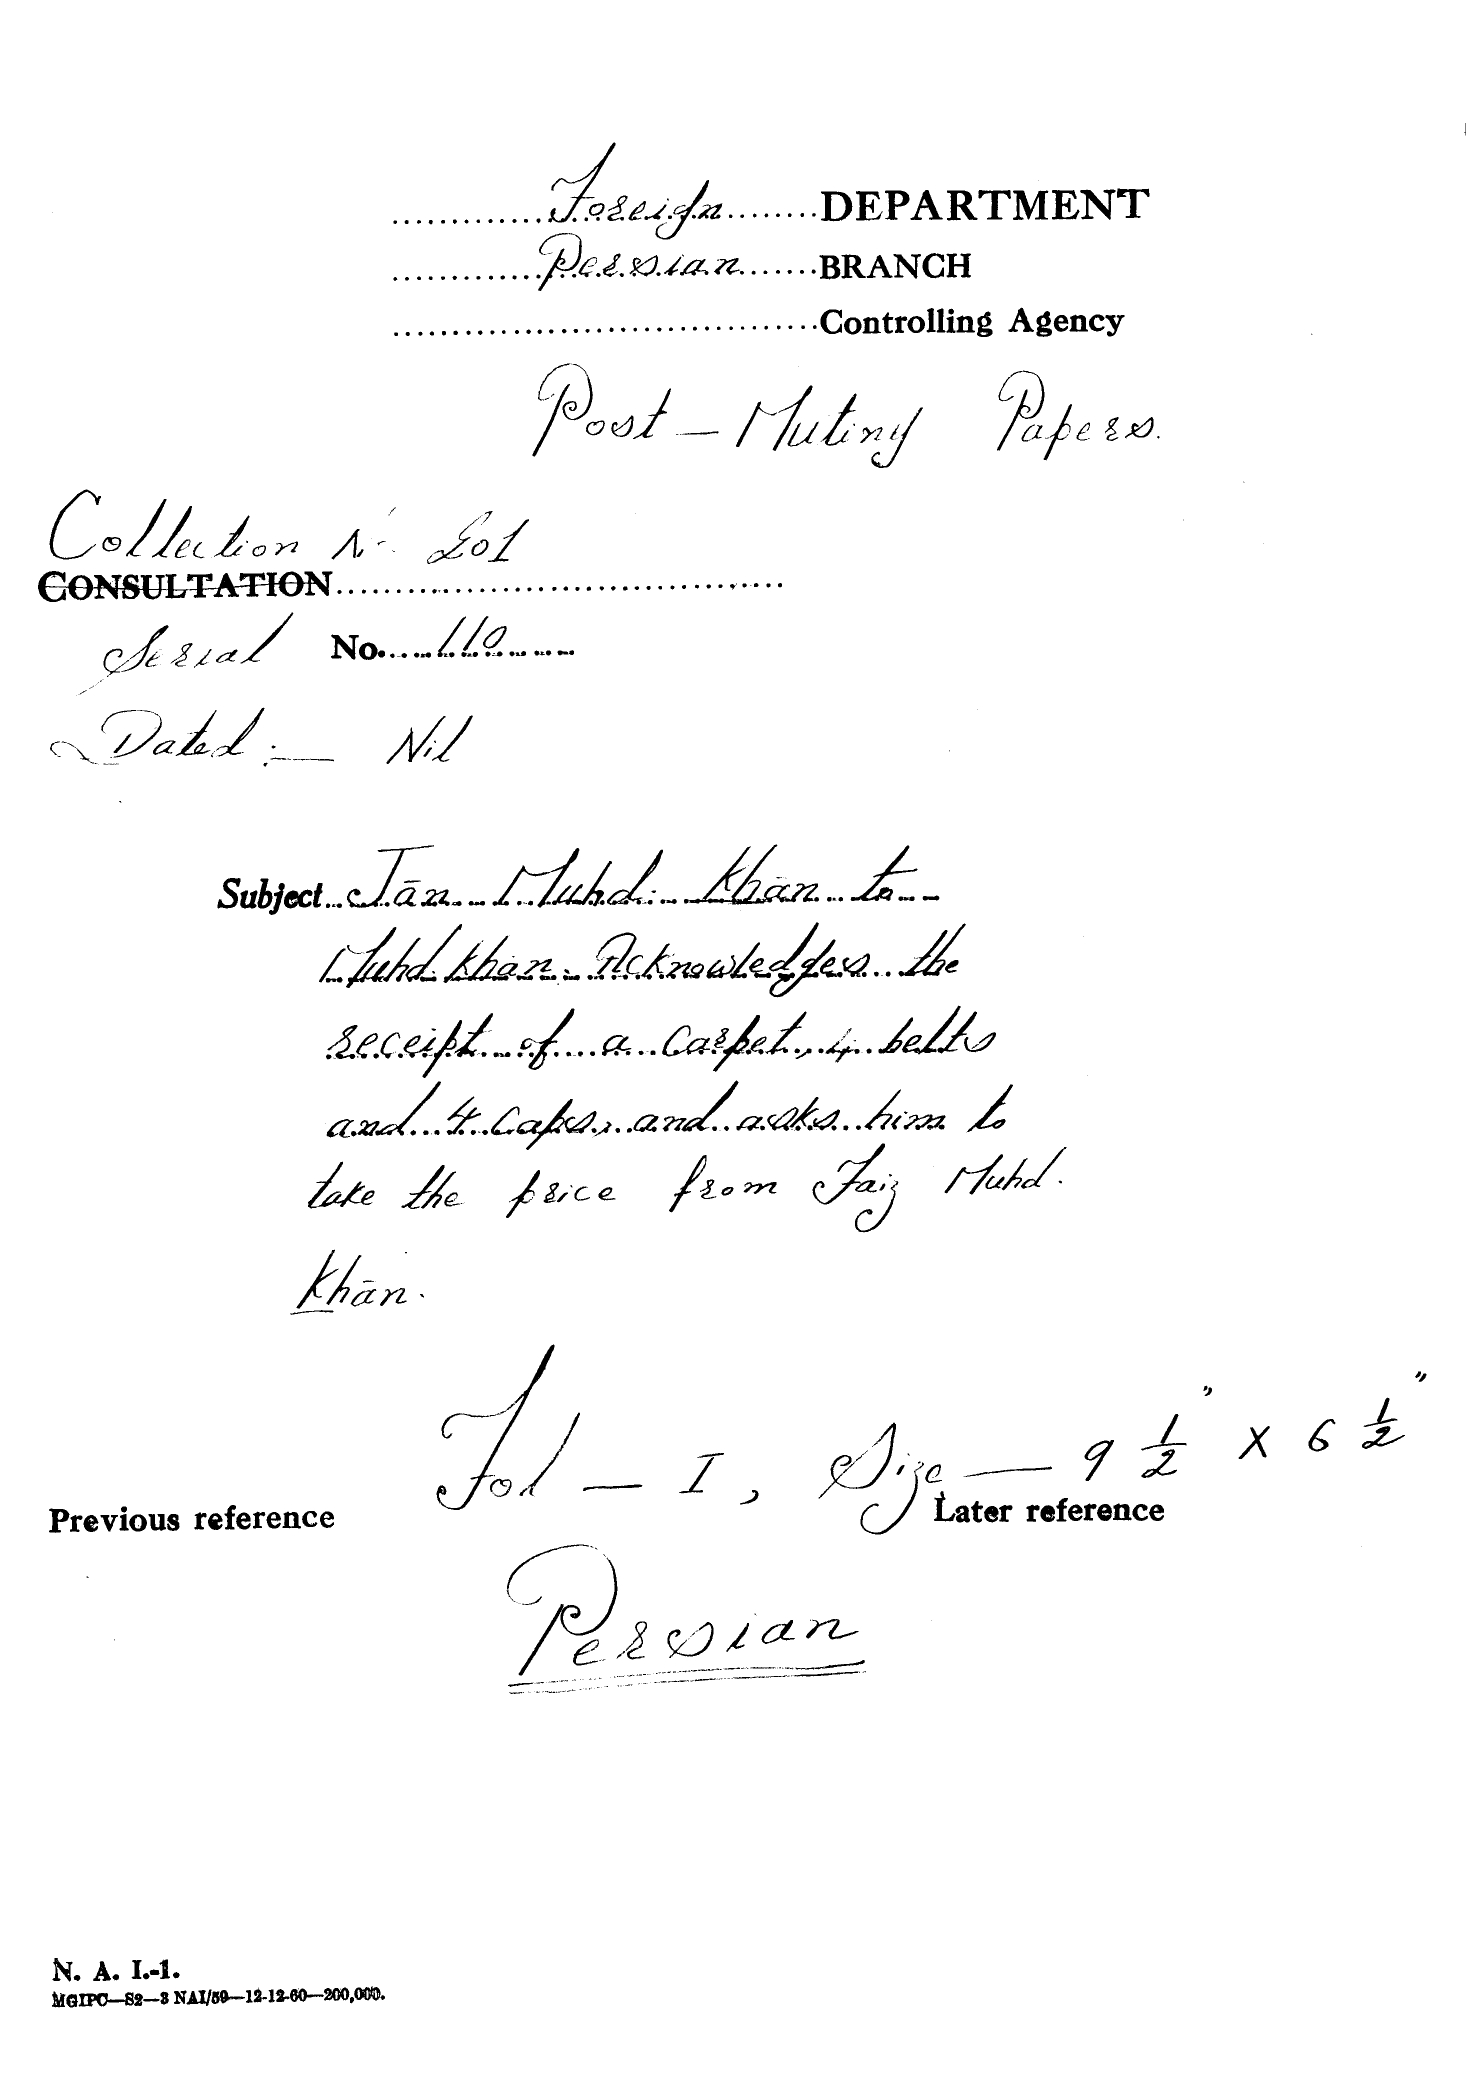 Foreign DEPARTMENT
Persian BRANCH
Controlling Agency
Post – Mutiny Papers.
Collection No 201
CONSULTATION
Serial No. 110
Dated :— Nil
Subject Jān Muhd. Khān to
Muhd Khān. Acknowledges the
receipt of a carpet, 4 belts
and 4 caps, and asks him to
take the price from Faiz Muhd.
Khān.
Fol — I, Size — 9 1/2" X 6 1/2"
Previous reference Later reference
Persian
N. A. I.-1.
MGIPC—S2—3 NAI/59—12-12-60—200,000.